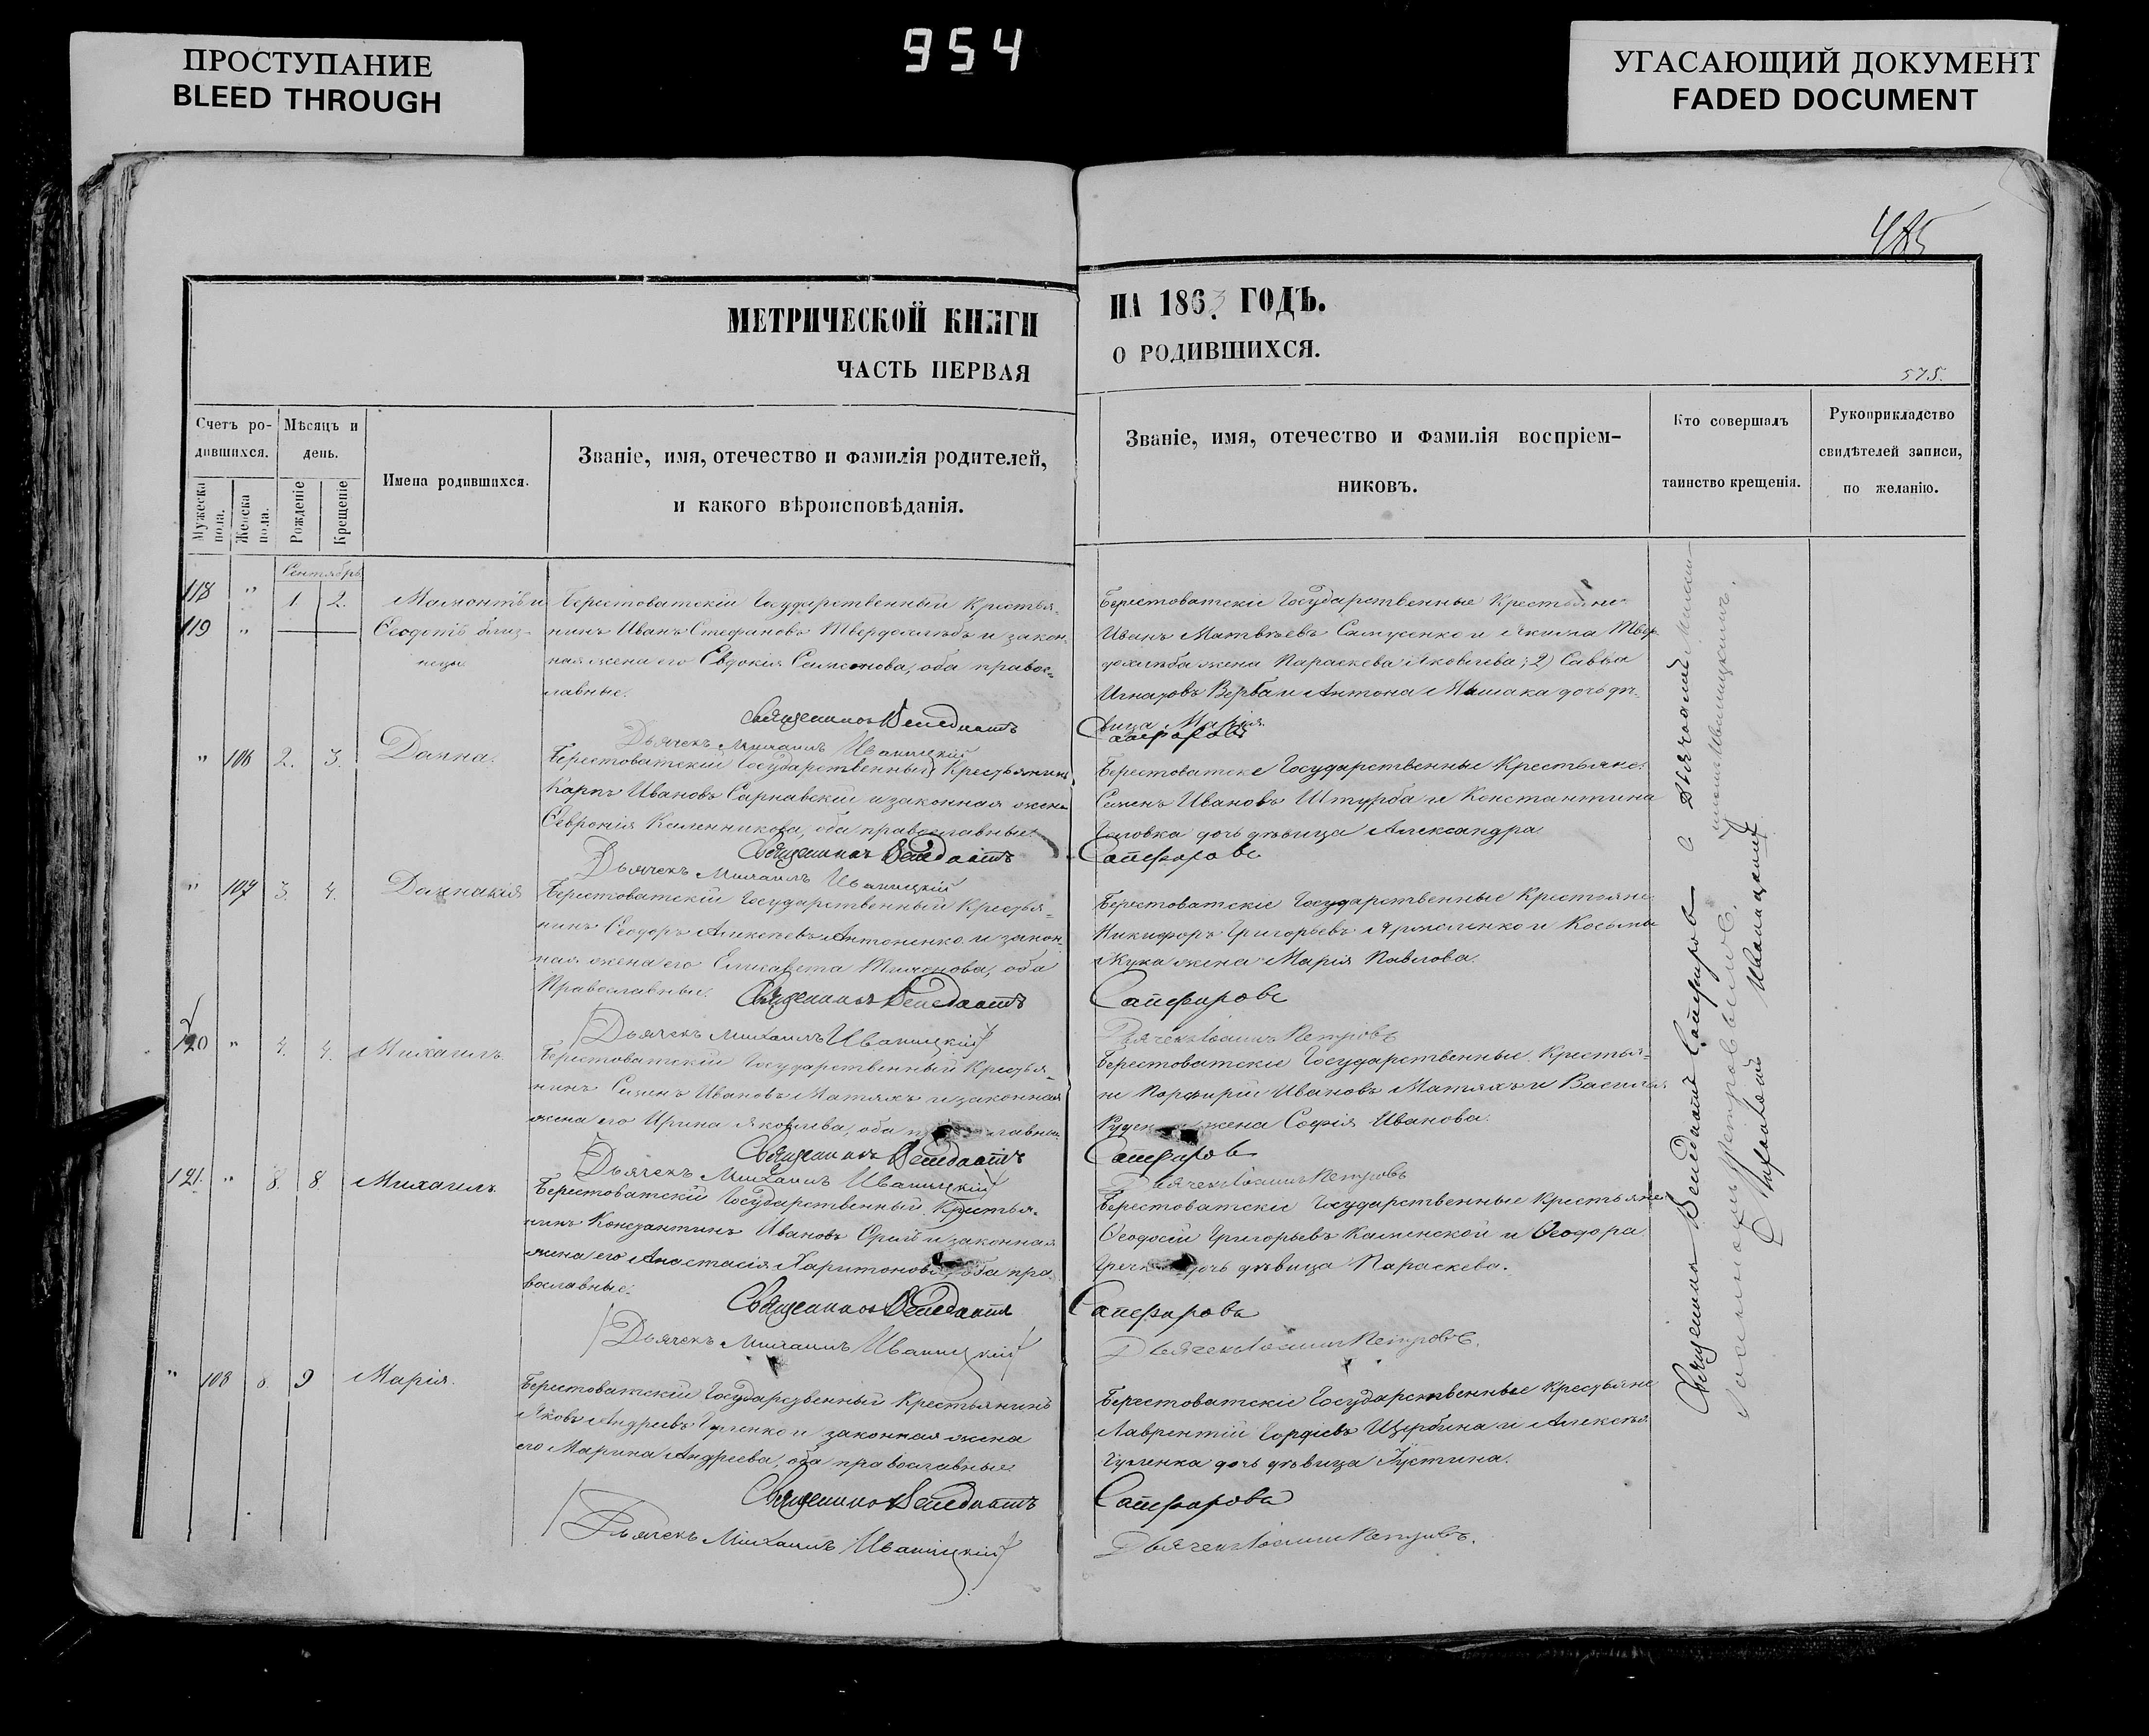 ПРОСТУПАНИЕ
BLEED THROUGH
954
УГАСАЮЩИЙ ДОКУМЕНТ
FADED DOCUMENT
485
МЕТРИЧЕСКОЙ КНИГИ
НА 1863 ГОДЪ.
ЧАСТЬ ПЕРВАЯ
О РОДИВШИХСЯ.
575.
Счетъ ро-
дившихся.
Мужеска пола.
Женска пола.
Мѣсяцъ и
день.
Рожденіе
Крещеніе
Имена родившихся.
Званіе, имя, отечество и фамилія родителей,
и какого вѣроисповѣданія.
Званіе, имя, отечество и фамилія воспріем-
никовъ.
Кто совершалъ
таинство крещенія.
Рукоприкладство
свидѣтелей записи,
по желанію.
Сентябрь
118 " 1 2.
119 "
Ѳеодотъ близ-
нецы
Берестоватскій Государственный Крестья-
нинъ Иванъ Стефановъ Твердохлѣбъ и закон-
ная жена его Евдокія Самсонова, оба правос-
лавные.
Священникъ Венедиктъ
Дьячекъ Михаилъ Иваницкій
Берестоватскіе Государственные Крестьяне
Иванъ Матвѣевъ Самусенко и Якима Твер-
дохлѣба жена Параскева Яковлева; 2) Савва
Игнатовъ Верба и Антона дочь дѣ-
вица Марія
Сапфировъ
" 106 2. 3.
Берестоватскій Государственный Крестьянинъ
Карпъ Ивановъ Сарнавскій и законная жена
Феврonія Калинникова, оба православные
Священникъ Венедиктъ
Дьячекъ Михаилъ Иваницкій
Берестоватскіе Государственные Крестьяне:
Ивановъ Штурба и Константина
Головка дочь дѣвица Александра
Сапфировъ
" 107 3. 4.
Домникія
Берестоватскій Государственный Крестья-
нинъ Ѳеодоръ Алексѣевъ Антоненко и закон-
ная жена его Елисавета оба
Православные.
Священникъ Венедиктъ
Дьячекъ Михаилъ Иваницкій
Берестоватскіе Государственные Крестьяне
Никифоръ Григорьевъ Ярмоленко и Косьмы
Жука жена Марія Павлова.
Сапфировъ
Дьячекъ Іоаннъ Петровъ
120 " 4. 4.
Михаилъ
Берестоватскій Государственный Крестья-
нинъ Ивановъ Матяхъ и законная
жена его Ирина Яковлева, оба
Священникъ Венедиктъ
Дьячекъ Михаилъ Иваницкій
Берестоватскіе Государственные Крестья-
не Порфирій Ивановъ Матяхъ и Василья
жена Софія Иванова.
Сапфировъ
Дьячекъ Іоаннъ Петровъ
121. " 8. 8
Михаилъ
Берестоватскій Государственный Крестья-
нинъ Константинъ Ивановъ и законная
жена его Анастасія Харитонова, оба пра-
вославные.
Священникъ Венедиктъ
Дьячекъ Михаилъ Иваницкій
Берестоватскіе Государственные Крестьяне
Ѳеодосій Григорьевъ Каменской и Ѳеодора
дочь дѣвица Параскева.
Сапфировъ
Дьячекъ Іоаннъ Петровъ.
" 108 8. 9
Марія.
Берестоватскій Государственный Крестьянинъ
Яковъ Андреевъ и законная жена
его Марина Андреева, оба православные
Священникъ Венедиктъ
Дьячекъ Михаилъ Иваницкій
Берестоватскіе Государственные Крестьяне
Лаврентій Гордіевъ Щербина и Алексѣя
дочь дѣвица Іустина.
Сапфировъ
Дьячекъ Іоаннъ Петровъ.
Священникъ Венедиктъ Сапфировъ с
Иваницкимъ.